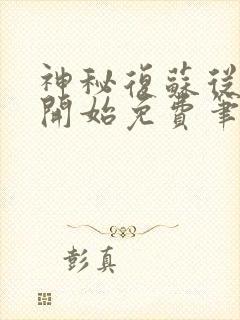 神秘復蘇從
開始免費筆
彭真